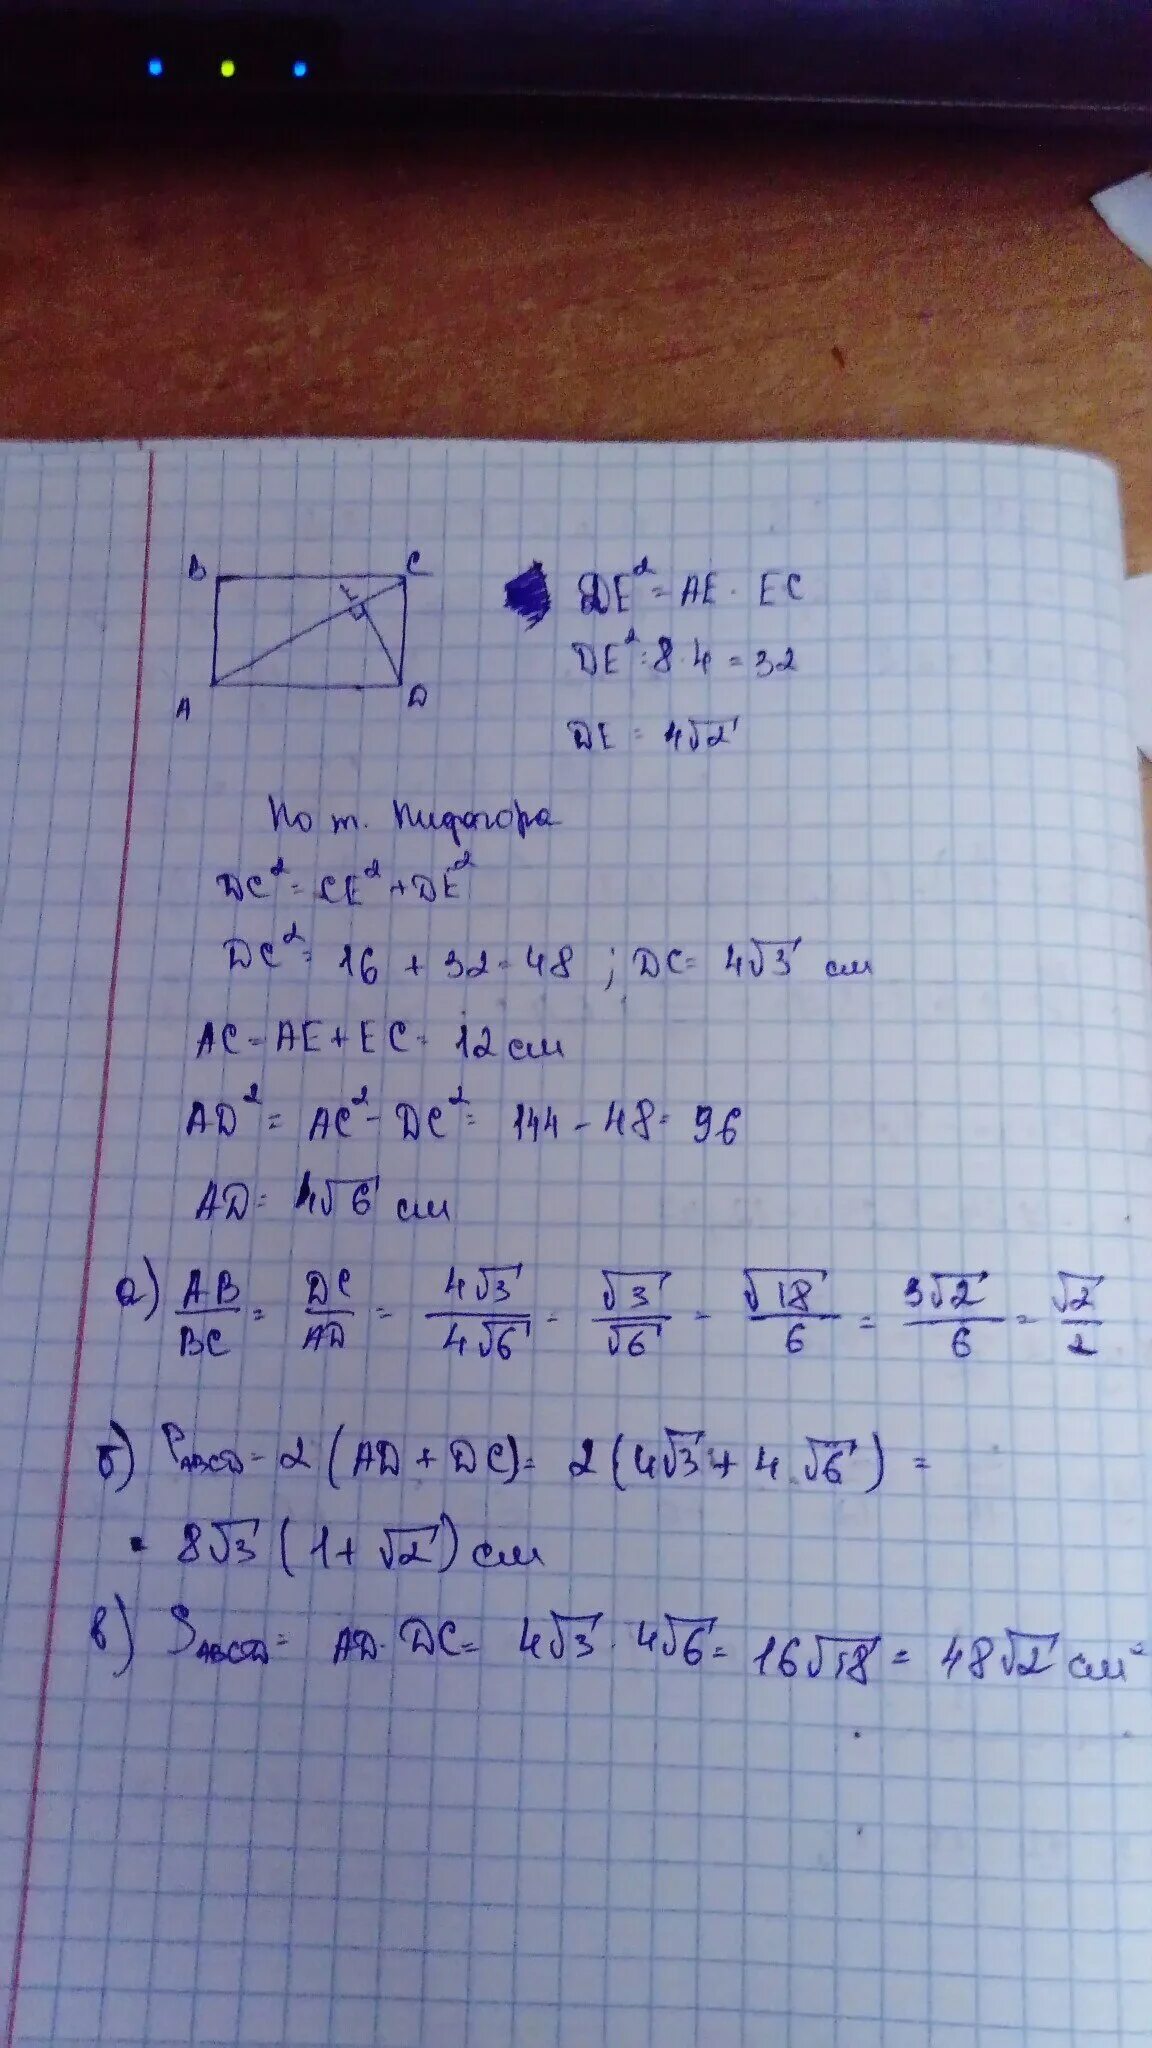 B C
E
A D
DE² = AE · EC
DE² = 8 · 4 = 32
DE = 4√2
По т. Пифагора
DC² = CE² + DE²
DC² = 16 + 32 = 48 ; DC = 4√3 см
AC = AE + EC = 12 см
AD² = AC² - DC² = 144 - 48 = 96
AD = 4√6 см
а) AB/BC = DC/AD = 4√3/4√6 = √3/√6 = √18/6 = 3√2/6 = √2/2
б) P_ABCD = 2 (AD + DC) = 2 (4√3 + 4√6) =
= 8√3 (1 + √2) см
в) S_ABCD = AD · DC = 4√3 · 4√6 = 16√18 = 48√2 см²